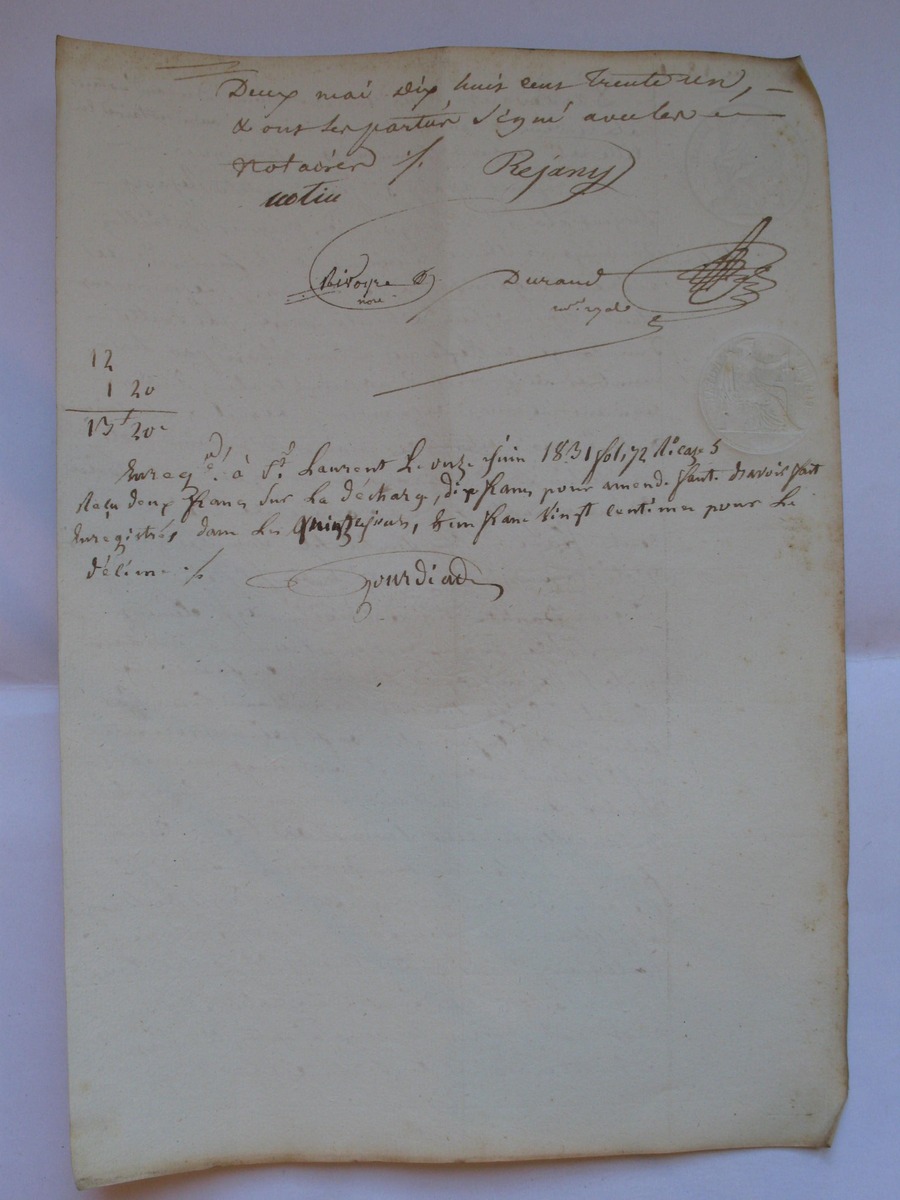 Deux mai dix huit cent trente un,
& ont les parties signé avec les
Notaires ./.
Rejany
notin
Rivoyre
nore
Durand
12
1 20
13f 20c
Enregé. à St. Laurent le onze juin 1831 fol. 72 Ro case 5
Reçu deux francs sur la décharge, dix francs pour amende faute d'avoir fait
Enregistré, dans les quinze jours, & un franc vingt centimes pour le
décime ./.
Gourdiat